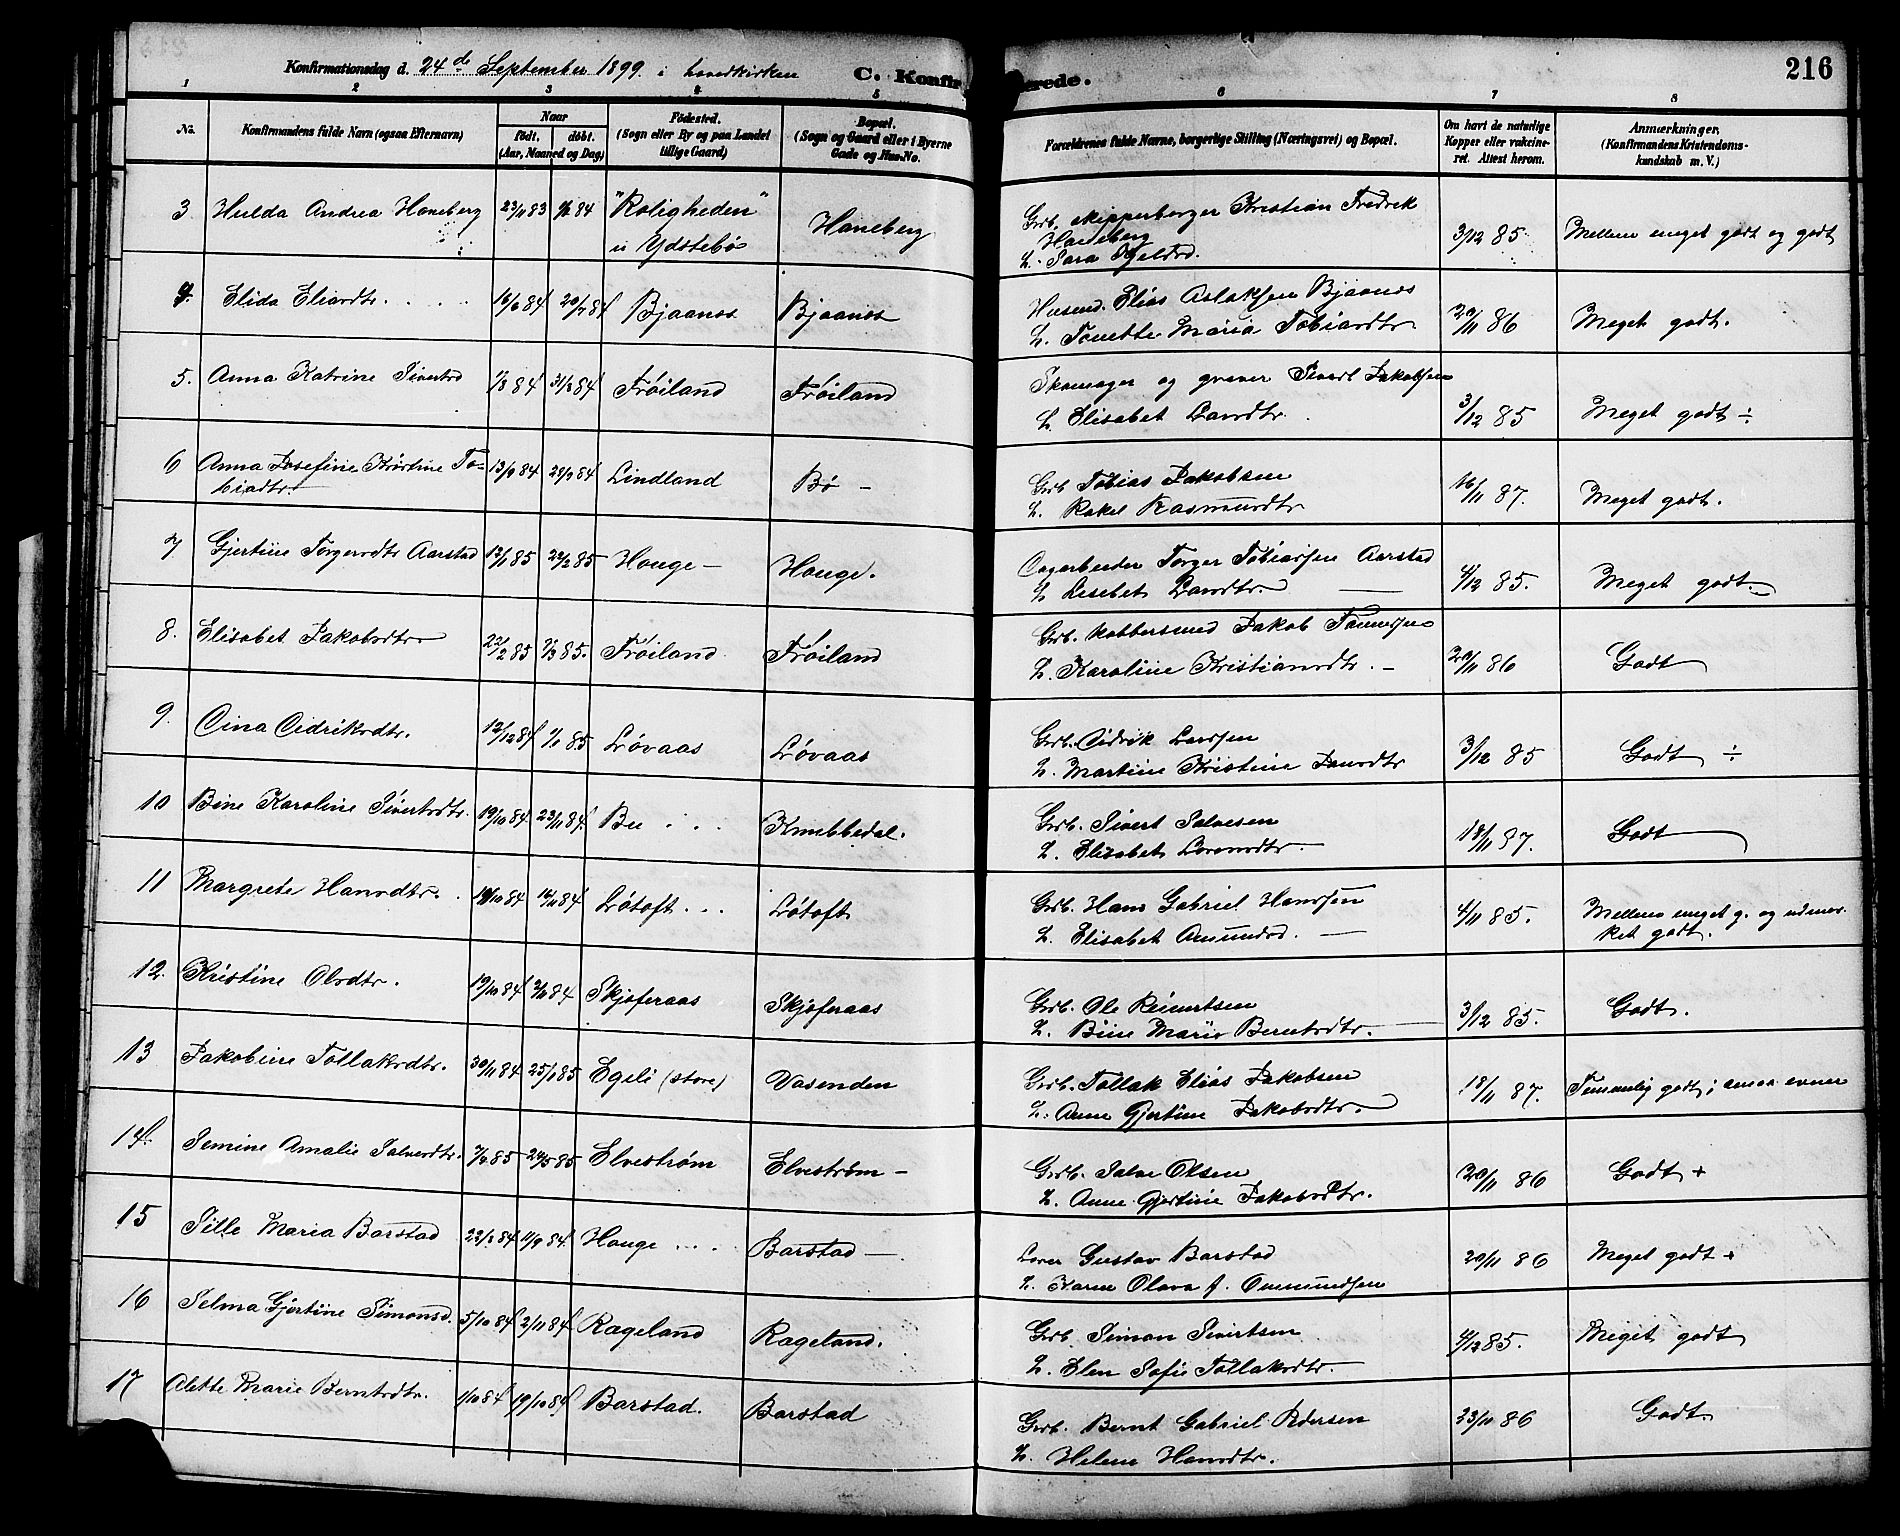 216
Konfirmationsdag d. 24de September 1899 i hovedkirken C. Konfir rede.
1 2 3 4 5 6 7 8
No. Konfirmandens fulde Navn (ogsaa Efternavn) Naar født. døbt. (Aar, Maaned og Dag) Fødested. (Sogn eller By og paa Landet tillige Gaard) Bopæl. (Sogn og Gaard eller i Byerne Gade og Hus-No. Forældrenes fulde Navne, borgerlige Stilling (Næringsvei) og Bopæl. Om havt de naturlige Kopper eller vakcineret. Attest herom. Anmærkninger. (Konfirmandens Kristendomskundskab m. V.)
3 Hulda Andrea Haneberg 23/11 83 84 "Roligheden" u Ydstebø Haneberg Grb. skipperborger Kristian Fredrik Haneberg
H. Sara 3/12 85 Mellem meget godt og godt
4. Elida Eliasdtr. 16/6 84 20/7 84 Bjaanes Bjaanes Husmd. Elias Aslaksen Bjaanes
H. Tonette Maria Tobiasdtr. 20/11 86 Meget godt.
5. Anna Katrine Sivertsd 1/8 84 31/8 84 Frøiland Frøiland Skomager og graver Sivert Jakobsen
H. Elisabet Larsdtr. 3/12 85 Meget godt ÷
6 Anna Josefine Kristine Tobiadtr. 13/9 84 28/9 84 Lindland Bø – Grb Tobias Jakobsen
H. Rakel Rasmusdtr 16/11 87. Meget godt.
7 Gjertine Torgersdtr Aarstad 12/1 85 22/2 85 Hauge – Hauge. Dagarbeider Torger Tobiassen Aarstad
H. Lisebet Larsdtr. 4/12 85. Meget godt.
8. Elisabet Jakobsdtr 22/2 85 7/3 85. Frøiland Frøiland Grb. kobbersmed Jakob Tønnessen
H. Karoline Kristiansdtr. – 20/11 86 Godt
9. Dina Didriksdtr. 12/12 84 1/1 85 Løvaas Løvaas Grb. Didrik Larssen
H. Martine Kristine Jansdtr 3/12 85 Godt ÷
10 Bine Karoline Sivertsdtr. 19/10 84 23/11 84. Bu Knebbedal. Grb. Sivert Salvesen
H. Elisabet Larsdtr. 18/11 87. Godt
11 Margrete Hansdtr. 19/10 84 16/11 84 Løtoft Løtoft Grb. Hans Gabriel Hanssen
H. Elisabet Amundsd. 4/11 85. Mellem meget g. og udmærket godt.
12. Kristine Olsdtr. 19/10 84 2/11 84 Skjøferaas Skjøferaas Grb. Ole Reinertsen
H. Bine Marie Berntsdtr. 3/12 85. Godt.
13 Jakobine Tollaksdtr. 30/11 84 25/1 85 Egeli (store) Vasenden Grb. Tollak Elias Jakobsen
H. Anne Gjertine Jakobsdtr. 18/11 87. Temmelig godt; smaa evner
14. Semine Amalie Salvesdtr. 7/4 85 24/5 85 Elvestrøm Elvestrøm – Grb. Salve Olsen
H. Anne Gjertine Jakobsdtr. 20/11 86 Godt +
15 Sille Maria Barstad 22/8 84 11/9 84 Hauge Barstad – Gustav Barstad
H. Karen Olava f. Ommundsen 20/11 86 Meget godt +
16 Selma Gjertine Simonsd. 5/10 84 2/11 84 Rageland Rageland. Grb. Simon Sivertsen
H. Elen Sofie Tollaksdtr. 4/12 85. Meget godt
17 Alette Marie Berntsdtr. 1/10 84 19/10 84 Barstad. Barstad Grb. Bernt Gabriel Pedersen
H. Helene Hansdtr. 23/11 86 Godt.